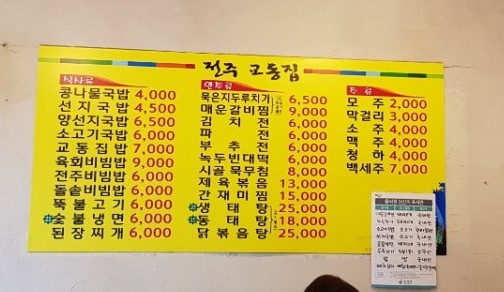 전주 교동집
식사류
콩나물국밥 4,000
선지국밥 4,500
양선지국밥 6,500
소고기국밥 6,000
교동집밥 7,000
육회비빔밥 9,000
전주비빔밥 6,000
돌솥비빔밥 6,000
뚝불고기 6,000
숯불냉면 6,000
된장찌개 6,000
안주류
묵은지두루치기 6,500
매운갈비찜 9,000
김치전 6,000
파전 6,000
부추전 6,000
녹두빈대떡 6,000
시골묵무침 8,000
제육볶음 13,000
간재미찜 15,000
생태탕 25,000
동태탕 25,000
닭볶음탕 25,000
주류
모주 2,000
막걸리 3,000
소주 4,000
맥주 4,000
청하 4,000
백세주 7,000